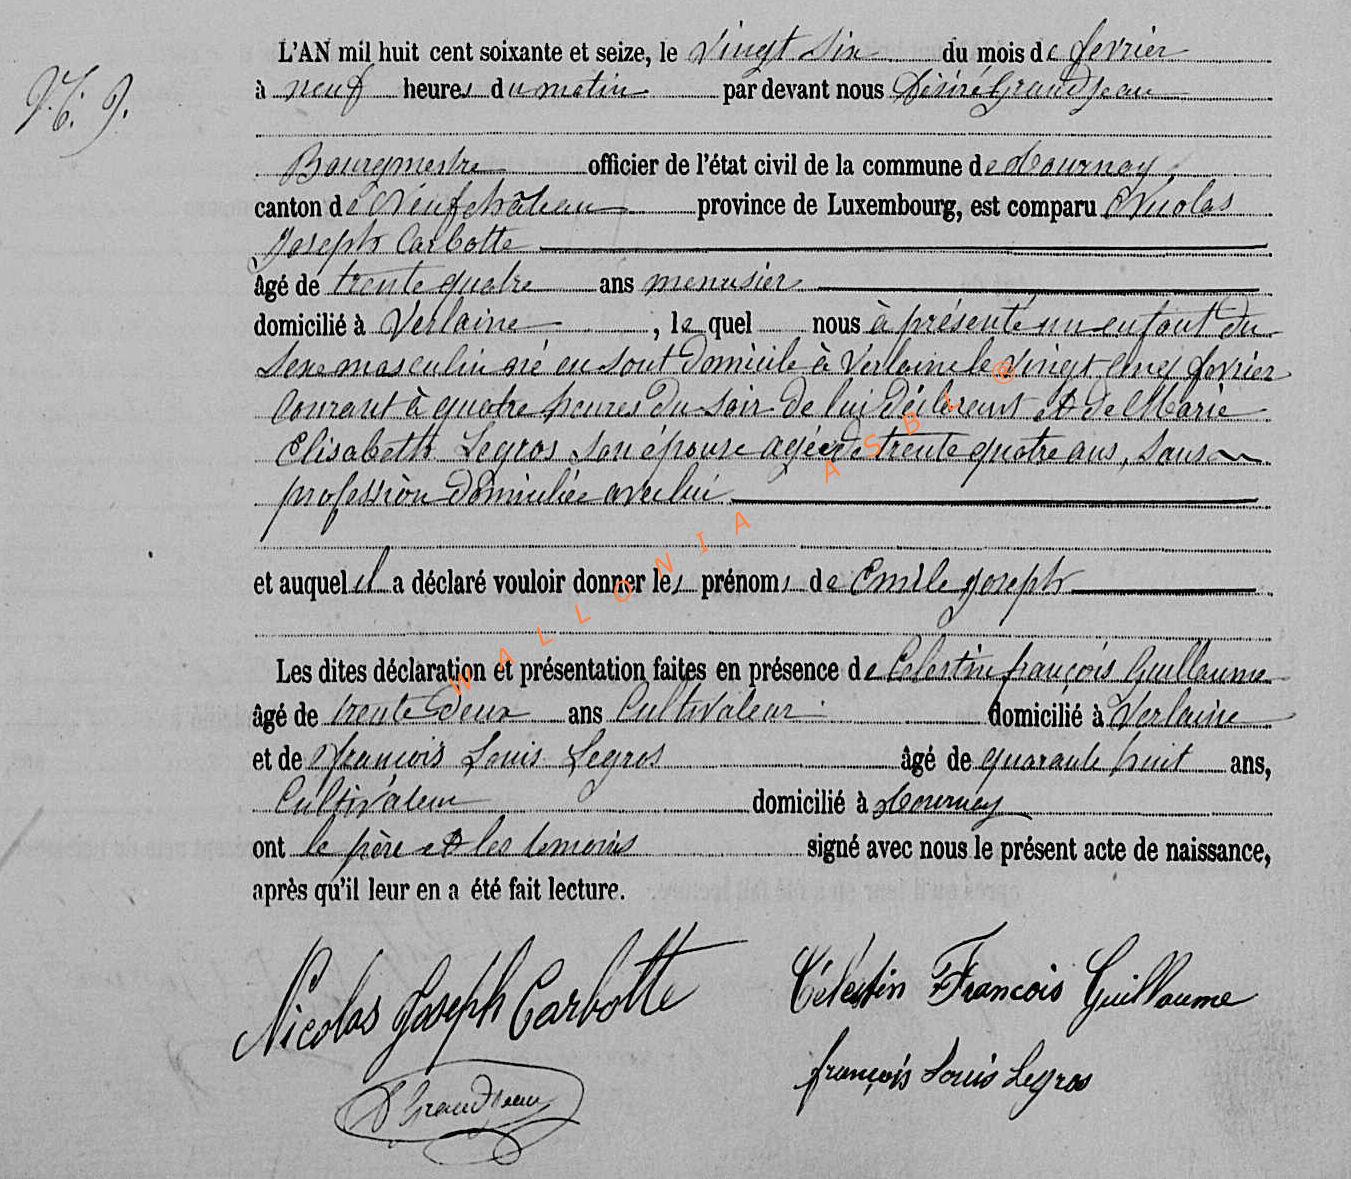 L'AN mil huit cent soixante et seize, le vingt six du mois de fevrier
à neuf heures du matin par devant nous Désiré Grandjean
Bourgmestre officier de l'état civil de la commune de Tournay,
canton de Neufchâteau province de Luxembourg, est comparu Nicolas
Joseph Carbotte
âgé de trente quatre ans menusier
domicilié à Verlaine, le quel nous à présenté un enfant du
sexe masculin né en sont domicile à Verlaine le vingt cinq fevrier
courant à quatre heures du soir de lui déclarent et de Marie
Elisabeth Legros son épouse agée de trente quatre ans, sans
profession domiciliée avec lui
et auquel il a déclaré vouloir donner les prénoms de Emile Joseph
Les dites déclaration et présentation faites en présence de Celestin françois Guillaume
âgé de trente deux ans Cultivateur domicilié à Verlaine
et de françois Louis Legros âgé de quarante huit ans,
Cultivateur domicilié à Tournay
ont le père et les temoins signé avec nous le présent acte de naissance,
après qu'il leur en a été fait lecture.
Nicolas Joseph Carbotte
Célestin François Guillaume
françois Louis Legros
D Grandjean
WALLONIA ASBL ©